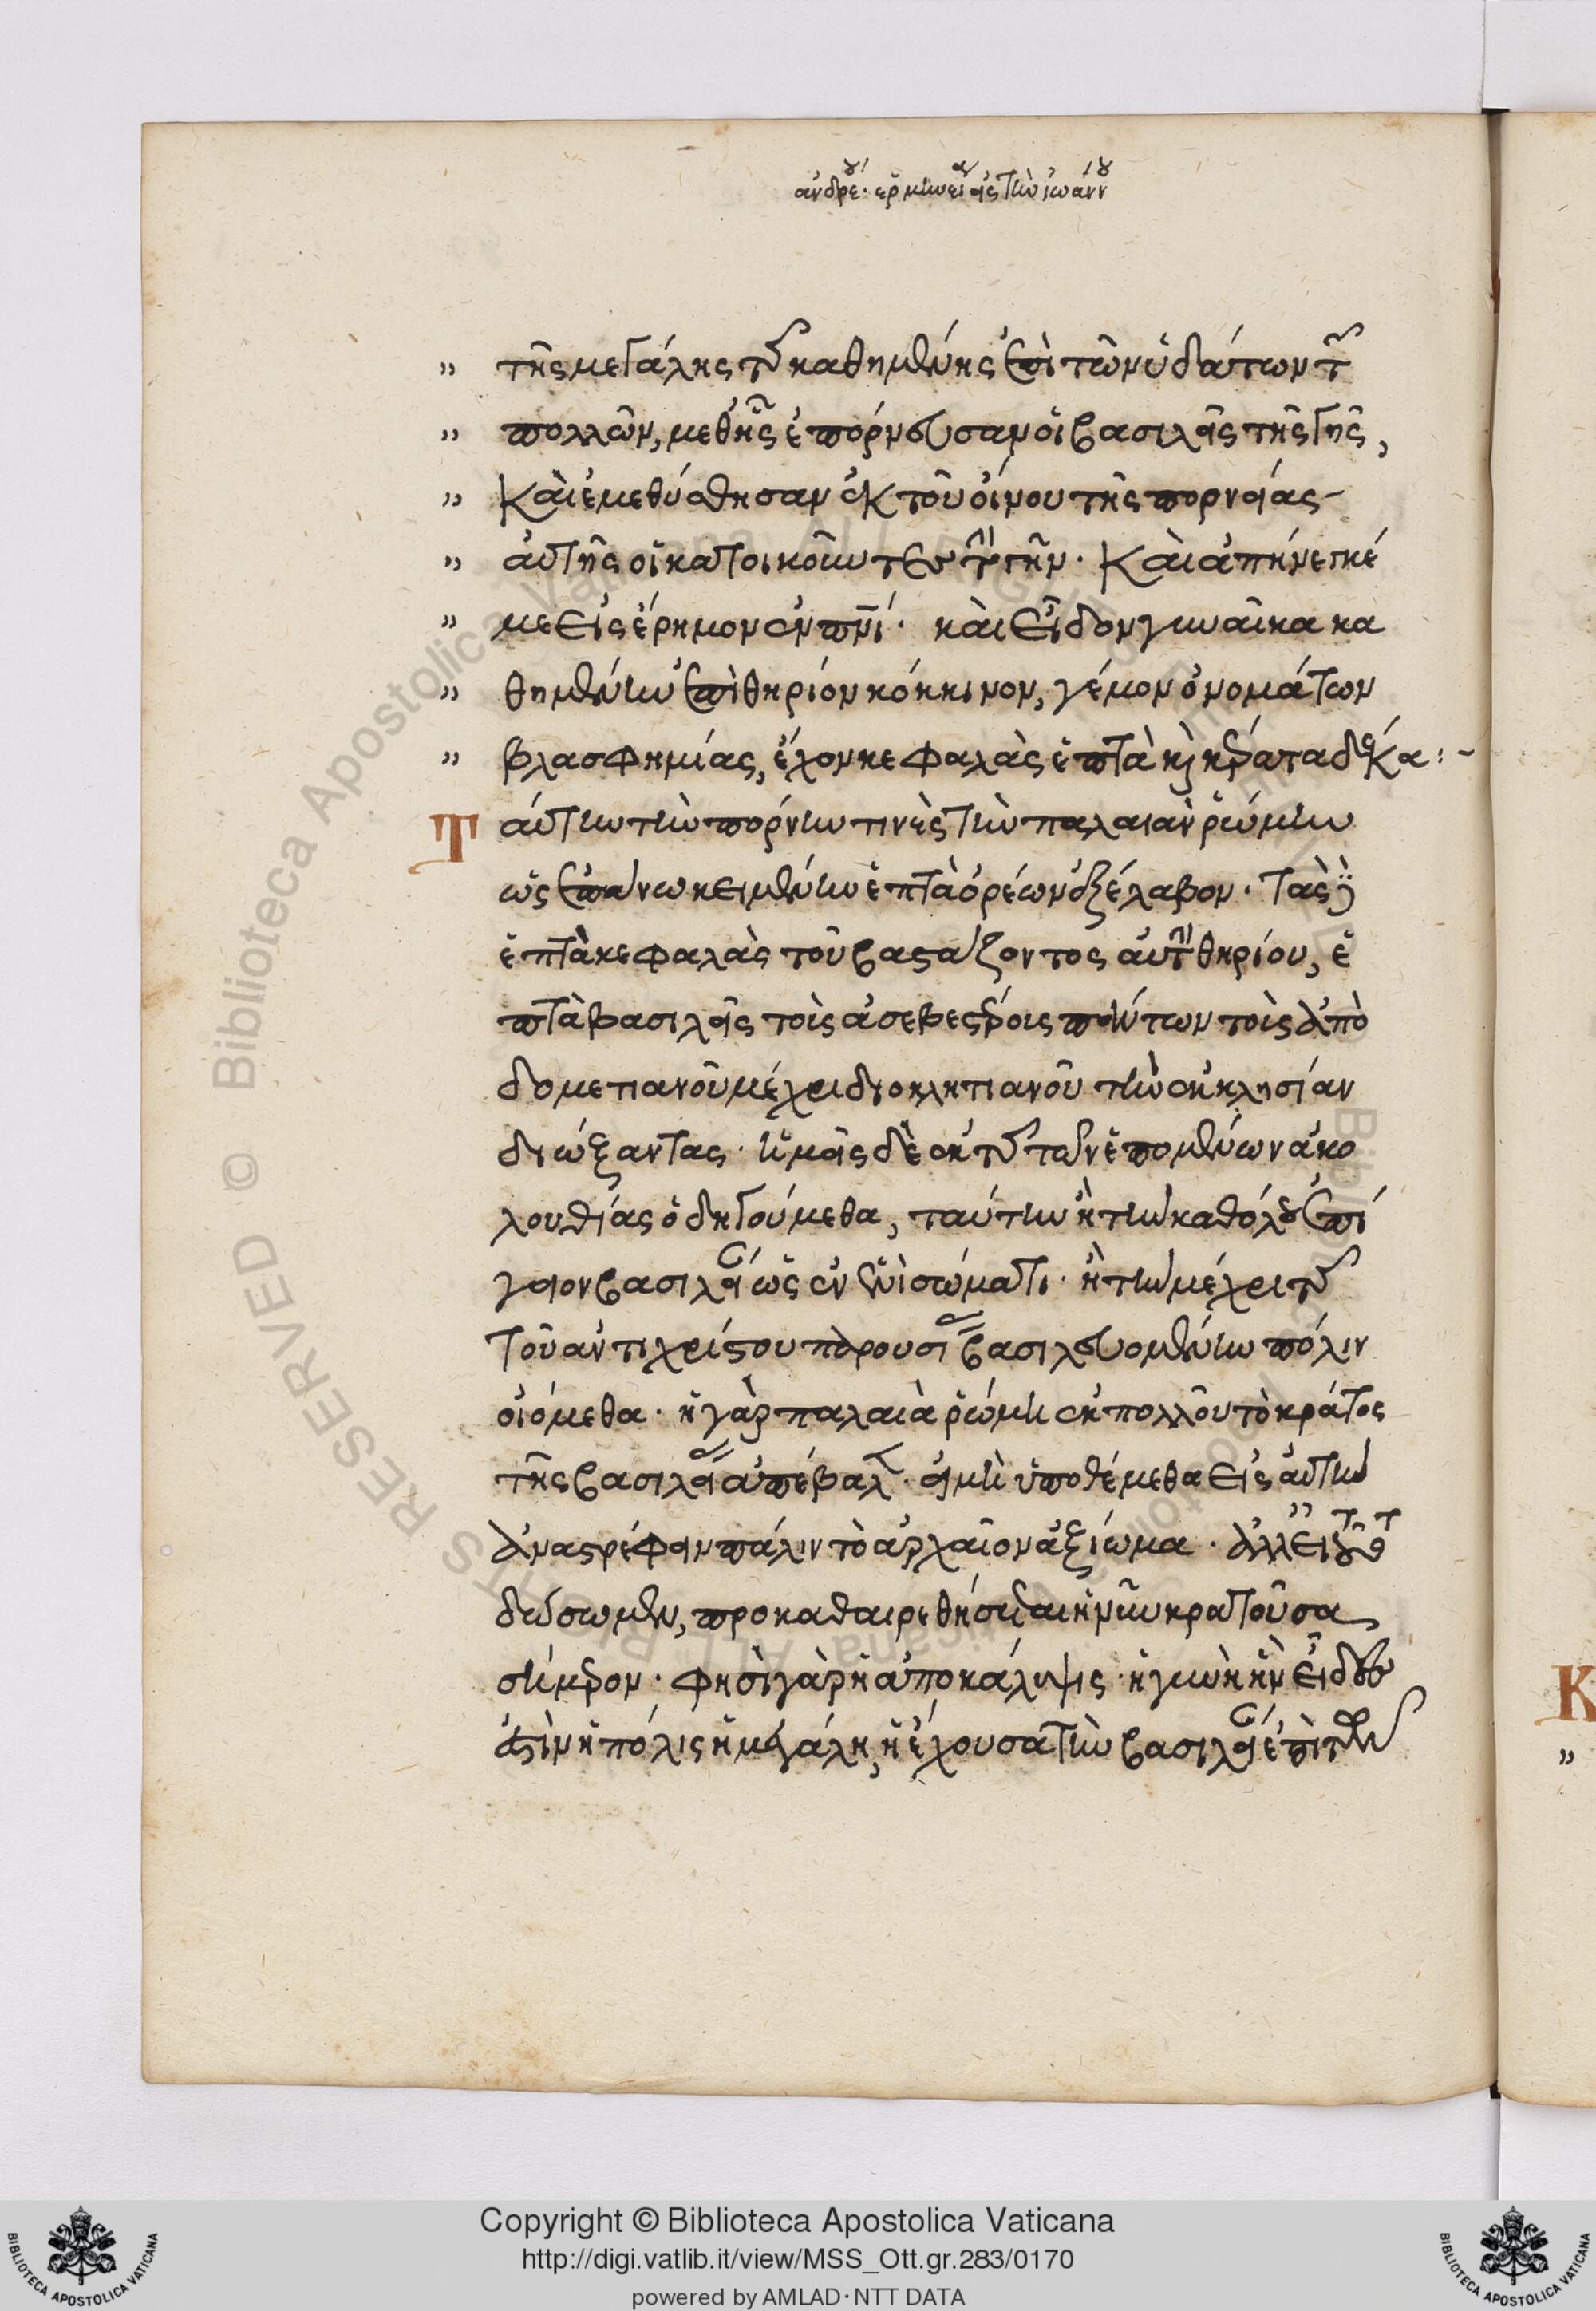 ἀνδρέου ἑρμηνεία εἰς τὴν ἰωάννου
„ τῆς μεγάλης τῆς καθημένης ἐπὶ τῶν ὑδάτων τῶν
„ πολλῶν, μεθ' ἧς ἐπόρνευσαν οἱ βασιλεῖς τῆς γῆς,
„ Καὶ ἐμεθύσθησαν ἐκ τοῦ οἴνου τῆς πορνείας
„ αὐτῆς οἱ κατοικοῦντες τὴν γῆν. Καὶ ἀπήνεγκέ
„ με εἰς ἔρημον ἐν πνι. καὶ εἶδον γυναῖκα κα
„ θημένην ἐπὶ θηρίον κόκκινον, γέμον ὀνομάτων
„ βλασφημίας, ἔχον κεφαλὰς ἑπτὰ καὶ κέρατα δέκα:-
Ταύτην τὴν πόρνην τινὲς τὴν παλαιὰν ῥώμην
ὡς ἐπάνω κειμένην ἑπτὰ ὀρέων ἐξέλαβον. τὰς δὲ
ἑπτὰ κεφαλὰς τοῦ βαστάζοντος αὐτὴν θηρίου, ἑ
πτὰ βασιλεῖς τοὺς ἀσεβεστέρους πάντων τοὺς ἀπὸ
δομετιανοῦ μέχρι διοκλητιανοῦ τὴν ἐκκλησίαν
διώξαντας. ἡμεῖς δὲ ἐκ τῆς τῶν ἑπομένων ἀκο
λουθίας ὁδηγούμεθα, ταύτην ἢ τὴν καθόλου ἐπί
γειον βασιλείαν ὡς ἐν ἑνὶ σώματι. ἢ τὴν μέχρι τῆς
τοῦ ἀντιχρίστου παρουσίας βασιλευομένην πόλιν
οἰόμεθα. ἡ γὰρ παλαιὰ ῥώμη ἐκ πολλοῦ τὸ κράτος
τῆς βασιλείας ἀπέβαλε. εἰ μὴ ὑποθέμεθα εἰς αὐτὴν
ἀναστρέφειν πάλιν τὸ ἀρχαῖον ἀξίωμα. ἀλλ' εἰ τοῦτο
δώσωμεν, προκαθαιρεθήσεται ἡ νῦν κρατοῦσα
σήμερον. φησὶ γὰρ ἡ ἀποκάλυψις. ἡ γυνὴ ἣν εἶδες
ἐστὶν ἡ πόλις ἡ μεγάλη, ἡ ἔχουσα τὴν βασιλείαν ἐπὶ τῶν
Κ
„
Copyright © Biblioteca Apostolica Vaticana
http://digi.vatlib.it/view/MSS_Ott.gr.283/0170
powered by AMLAD·NTT DATA